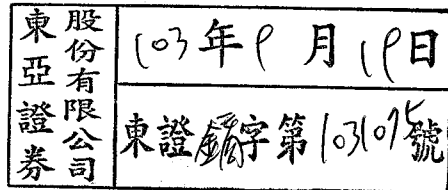 東亞證券
股份有限公司
103年9月19日
東證字第1031075號